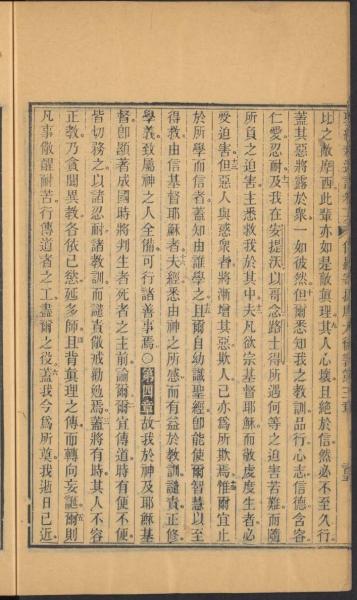 比之敵摩西此輩亦如是敵眞理其人心壞且絶於信然必不至久行
蓋其惡將露於衆一如彼然但爾悉知我之教訓品行心志信德含容
仁愛忍耐及我在安提沃以哥念路士得所遇何等之迫害苦難而隨
所負之迫害主悉救我於其中夫凡欲宗基督耶穌而敬虔度生者必
受迫害但惡人與惑衆者將漸增其惡欺人已亦爲所欺焉惟爾宜止
於所學而信者蓋知由誰學之且爾自幼識聖經卽能使爾智慧以至
得救由信基督耶穌者夫經悉由神之所感而有益於教訓譴責正修
學義致屬神之人全備可行諸善事焉○第四章故我於神及耶穌基
督卽顯著成國時將判生者死者之主前諭爾爾宜傳道時有便不便
皆切務之以諸忍耐諸教訓而譴責儆戒勸勉焉蓋將有時其人不容
正教乃貪聞異教各依己慾延多師且背眞理之傳而轉向妄誕爾則
凡事儆醒耐苦行傳道者之工盡爾之役蓋我今爲所奠我逝日已近